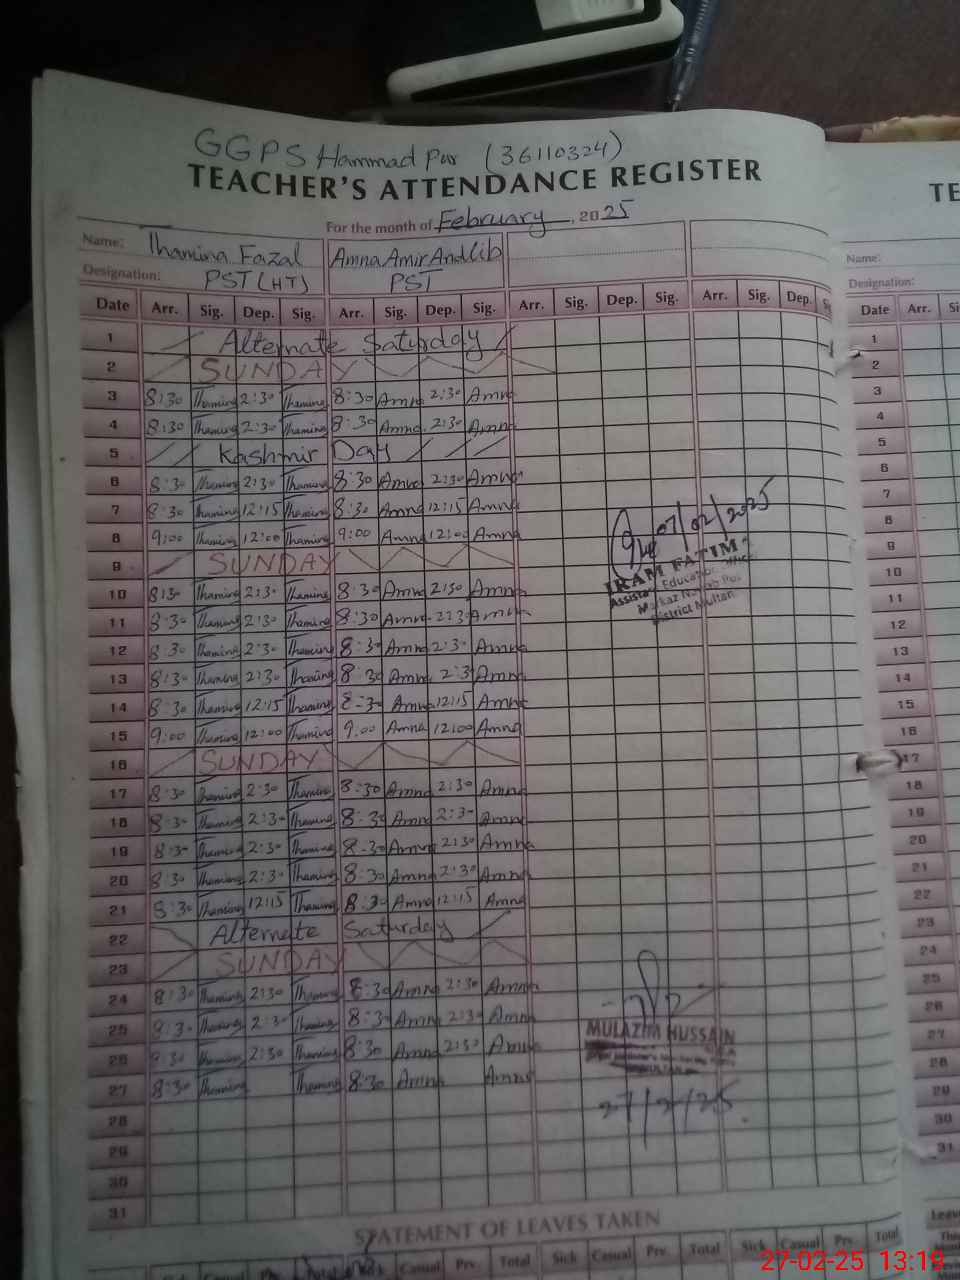 GGPS Hammad Pur (36110324)
TEACHER'S ATTENDANCE REGISTER
For the month of February, 2025
Name: Thamina Fazal Amna Amir Andlib
Designation: PST (HT) PST
Date Arr. Sig. Dep. Sig. Arr. Sig. Dep. Sig. Arr. Sig. Dep. Sig. Arr. Sig. Dep.
1 Alternate Saturday
2 SUNDAY
3 8:30 Thamina 2:30 Thamina 8:30 Amna 2:30 Amna
4 8:30 Thamina 2:30 Thamina 8:30 Amna 2:30 Amna
5 Kashmir Day
6 8:30 Thamina 2:30 Thamina 8:30 Amna 2:30 Amna
7 8:30 Thamina 12:15 Thamina 8:30 Amna 12:15 Amna
8 9:00 Thamina 12:00 Thamina 9:00 Amna 12:00 Amna
9 SUNDAY
10 8:30 Thamina 2:30 Thamina 8:30 Amna 2:30 Amna
11 8:30 Thamina 2:30 Thamina 8:30 Amna 2:30 Amna
12 8:30 Thamina 2:30 Thamina 8:30 Amna 2:30 Amna
13 8:30 Thamina 2:30 Thamina 8:30 Amna 2:30 Amna
14 8:30 Thamina 12:15 Thamina 8:30 Amna 12:15 Amna
15 9:00 Thamina 12:00 Thamina 9:00 Amna 12:00 Amna
16 SUNDAY
17 8:30 Thamina 2:30 Thamina 8:30 Amna 2:30 Amna
18 8:30 Thamina 2:30 Thamina 8:30 Amna 2:30 Amna
19 8:30 Thamina 2:30 Thamina 8:30 Amna 2:30 Amna
20 8:30 Thamina 2:30 Thamina 8:30 Amna 2:30 Amna
21 8:30 Thamina 12:15 Thamina 8:30 Amna 12:15 Amna
22 Alternate Saturday
23 SUNDAY
24 8:30 Thamina 2:30 Thamina 8:30 Amna 2:30 Amna
25 8:30 Thamina 2:30 Thamina 8:30 Amna 2:30 Amna
26 8:30 Thamina 2:30 Thamina 8:30 Amna 2:30 Amna
27 8:30 Thamina Thamina 8:30 Amna Amna
28
29
30
31
07/02/2025
IRAM FATIMA
Assistant Education Officer
Markaz
District Multan
MULAZIM HUSSAIN
27/2/25
STATEMENT OF LEAVES TAKEN
Sick Casual Prv. Total Sick Casual Prv. Total Sick Casual Prv. Total
TE
Name:
Designation:
Date Arr. Sig.
1
2
3
4
5
6
7
8
9
10
11
12
13
14
15
16
17
18
19
20
21
22
23
24
25
26
27
28
29
30
31
27-02-25 13:19